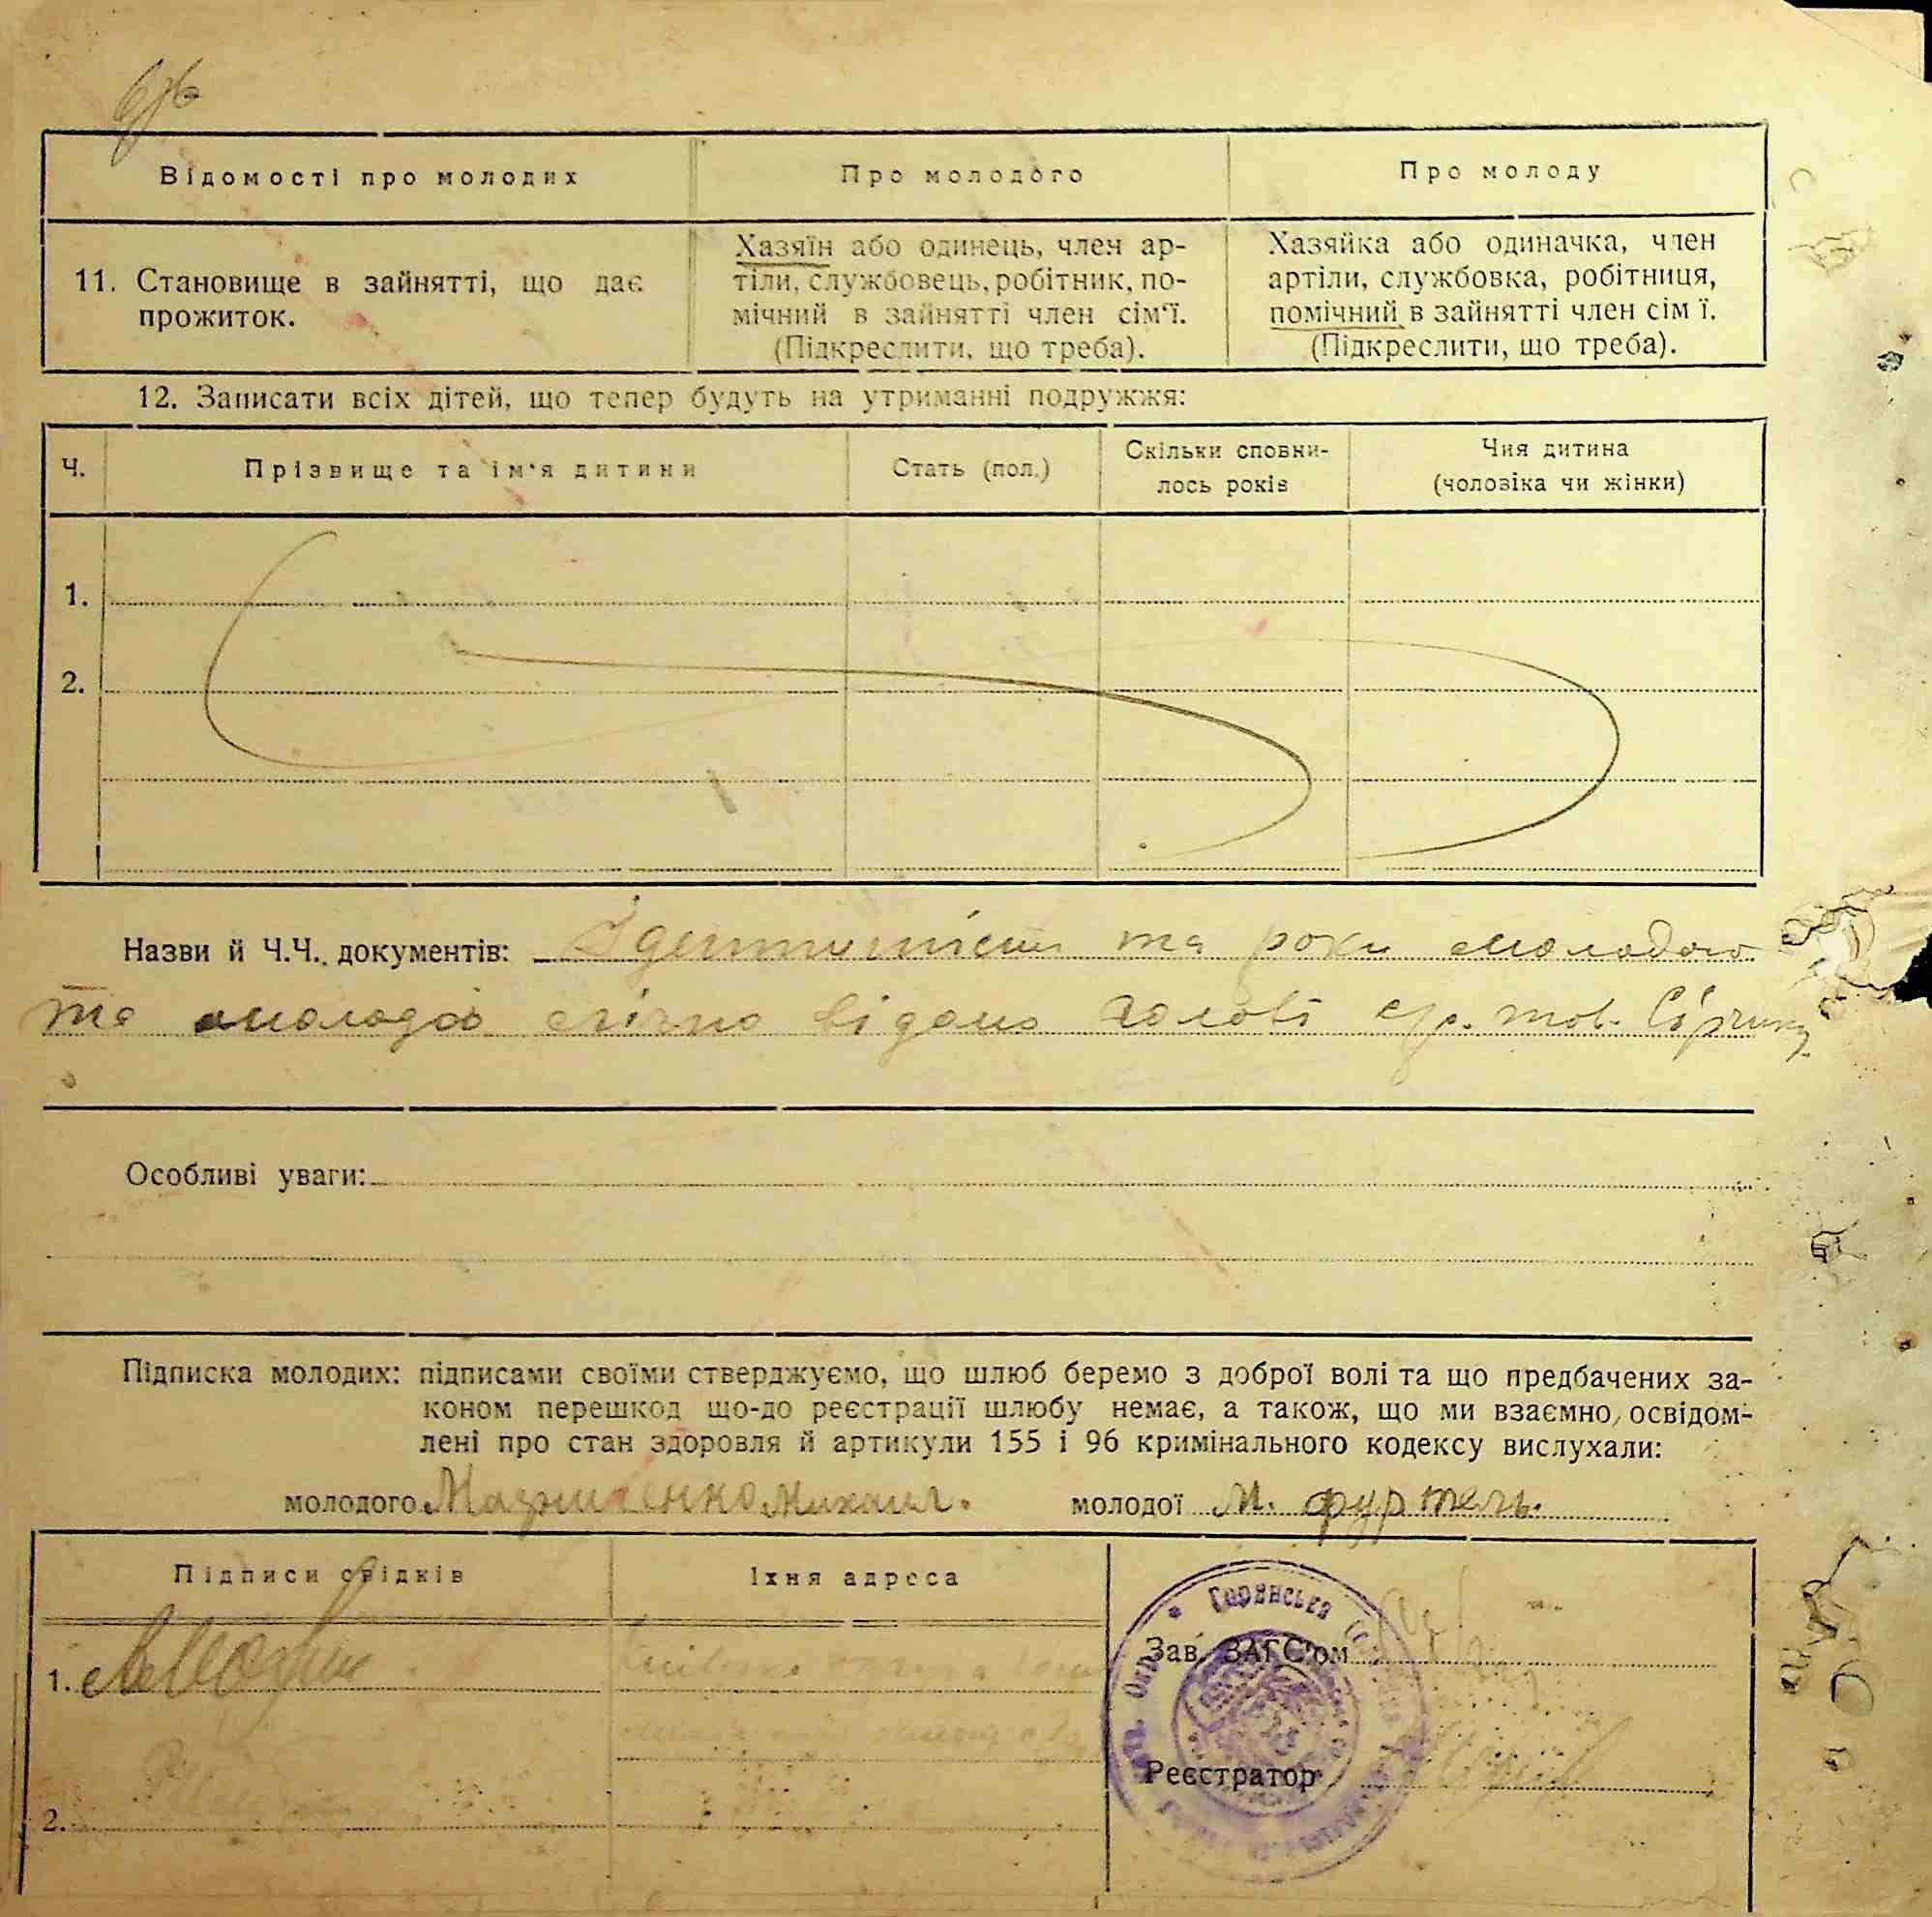 Відомості про молодих
Про молодого
Про молоду
11. Становище в зайнятті, що дає
прожиток.
Хазяїн або одинець, член ар-
тіли, службовець, робітник, по-
мічний в зайнятті член сім'ї.
(Підкреслити, що треба).
Хазяйка або одиначка, член
артіли, службовка, робітниця,
помічний в зайнятті член сім ї.
(Підкреслити, що треба).
12. Записати всіх дітей, що тепер будуть на утриманні подружжя:
Ч.
Прізвище та ім'я дитини
Стать (пол.)
Скільки сповни-
лось років
Чия дитина
(чоловіка чи жінки)
1.
2.
Назви й Ч.Ч. документів: та роки молодого
та молодої відомо голові с/р. тов.
Особливі уваги:
Підписка молодих: підписами своїми стверджуємо, що шлюб беремо з доброї волі та що предбачених за-
коном перешкод що-до реєстрації шлюбу немає, а також, що ми взаємно освідом-
лені про стан здоровля й артикули 155 і 96 кримінального кодексу вислухали:
молодого Михаил. молодої М. фуртель.
Підписи свідків
Їхня адреса
1.
2.
Зав. ЗАГС'ом
Реєстратор